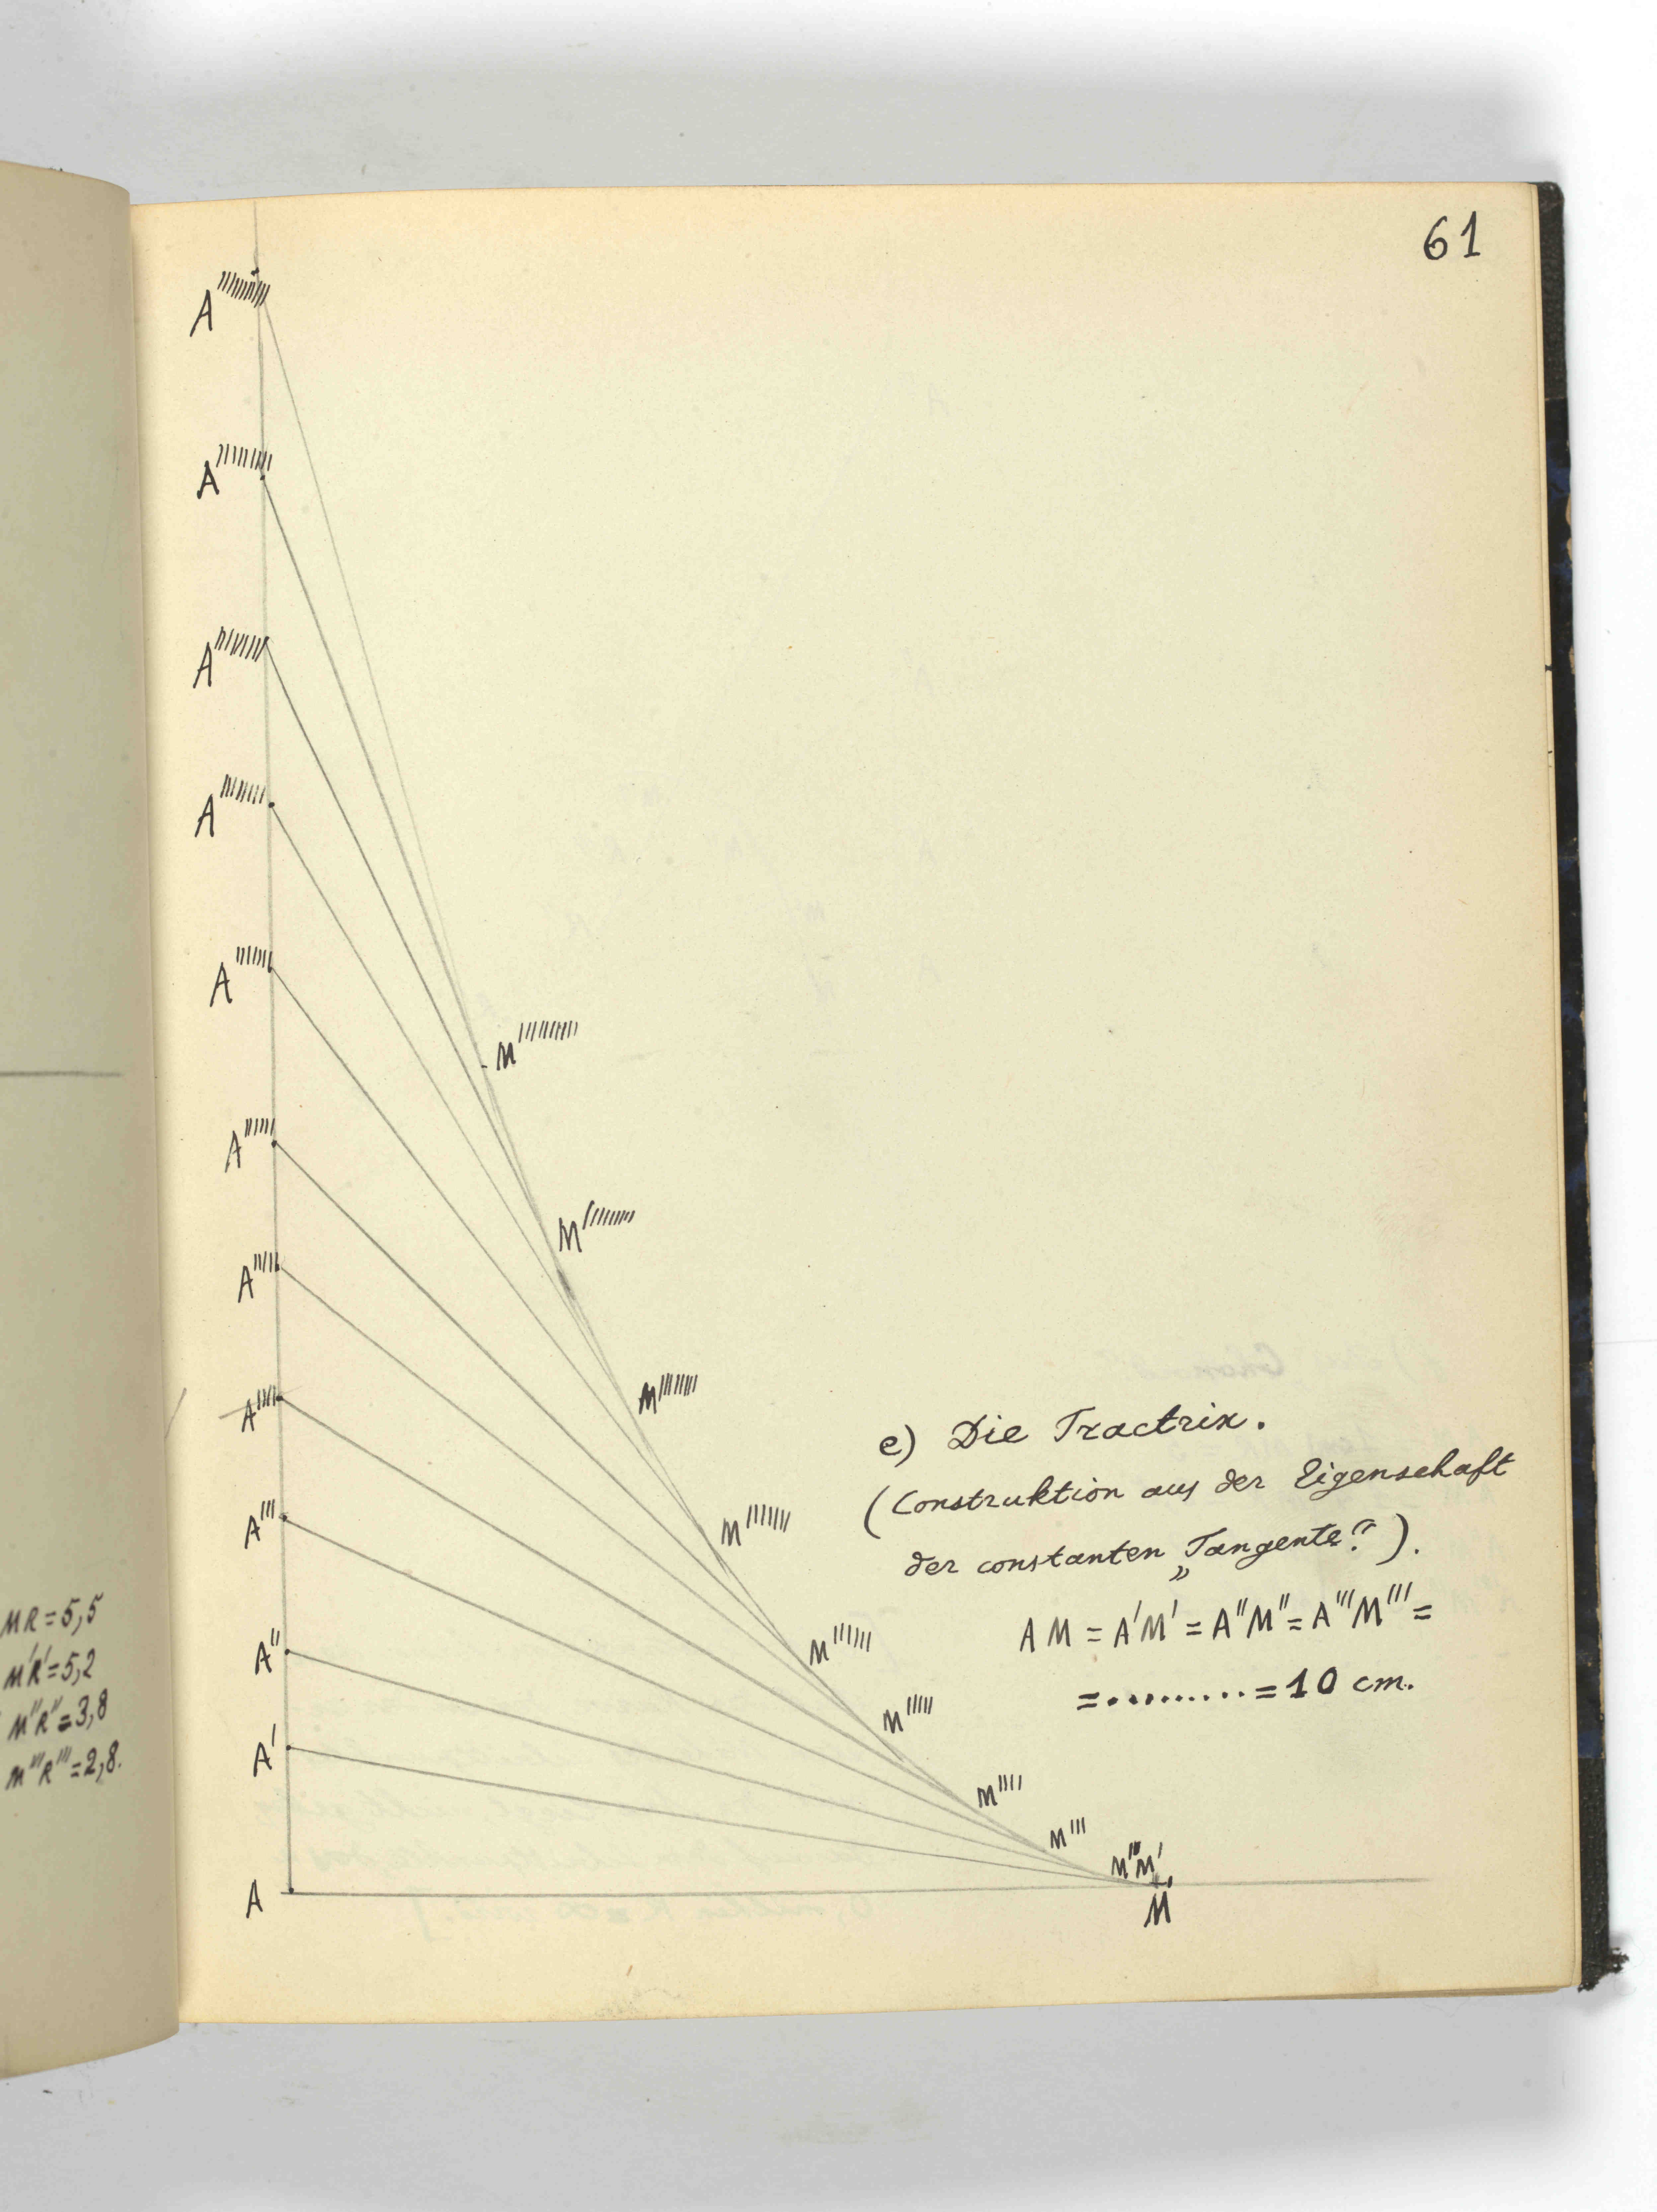 MR = 5,5
M'R' = 5,2
M''R'' = 3,8
M'''R''' = 2,8.
61
A'''''''''''
A''''''''''
A'''''''''
A''''''''
A'''''''
M''''''''''
A''''''
M'''''''''
A'''''
M''''''''
A''''
A'''
M'''''''
A''
M''''''
M'''''
A'
M''''
M'''
M'' M'
A
M
e) Die Tractrix.
(Construktion aus der Eigenschaft
der constanten „Tangente“).
AM = A'M' = A''M'' = A'''M''' =
= .......... = 10 cm.